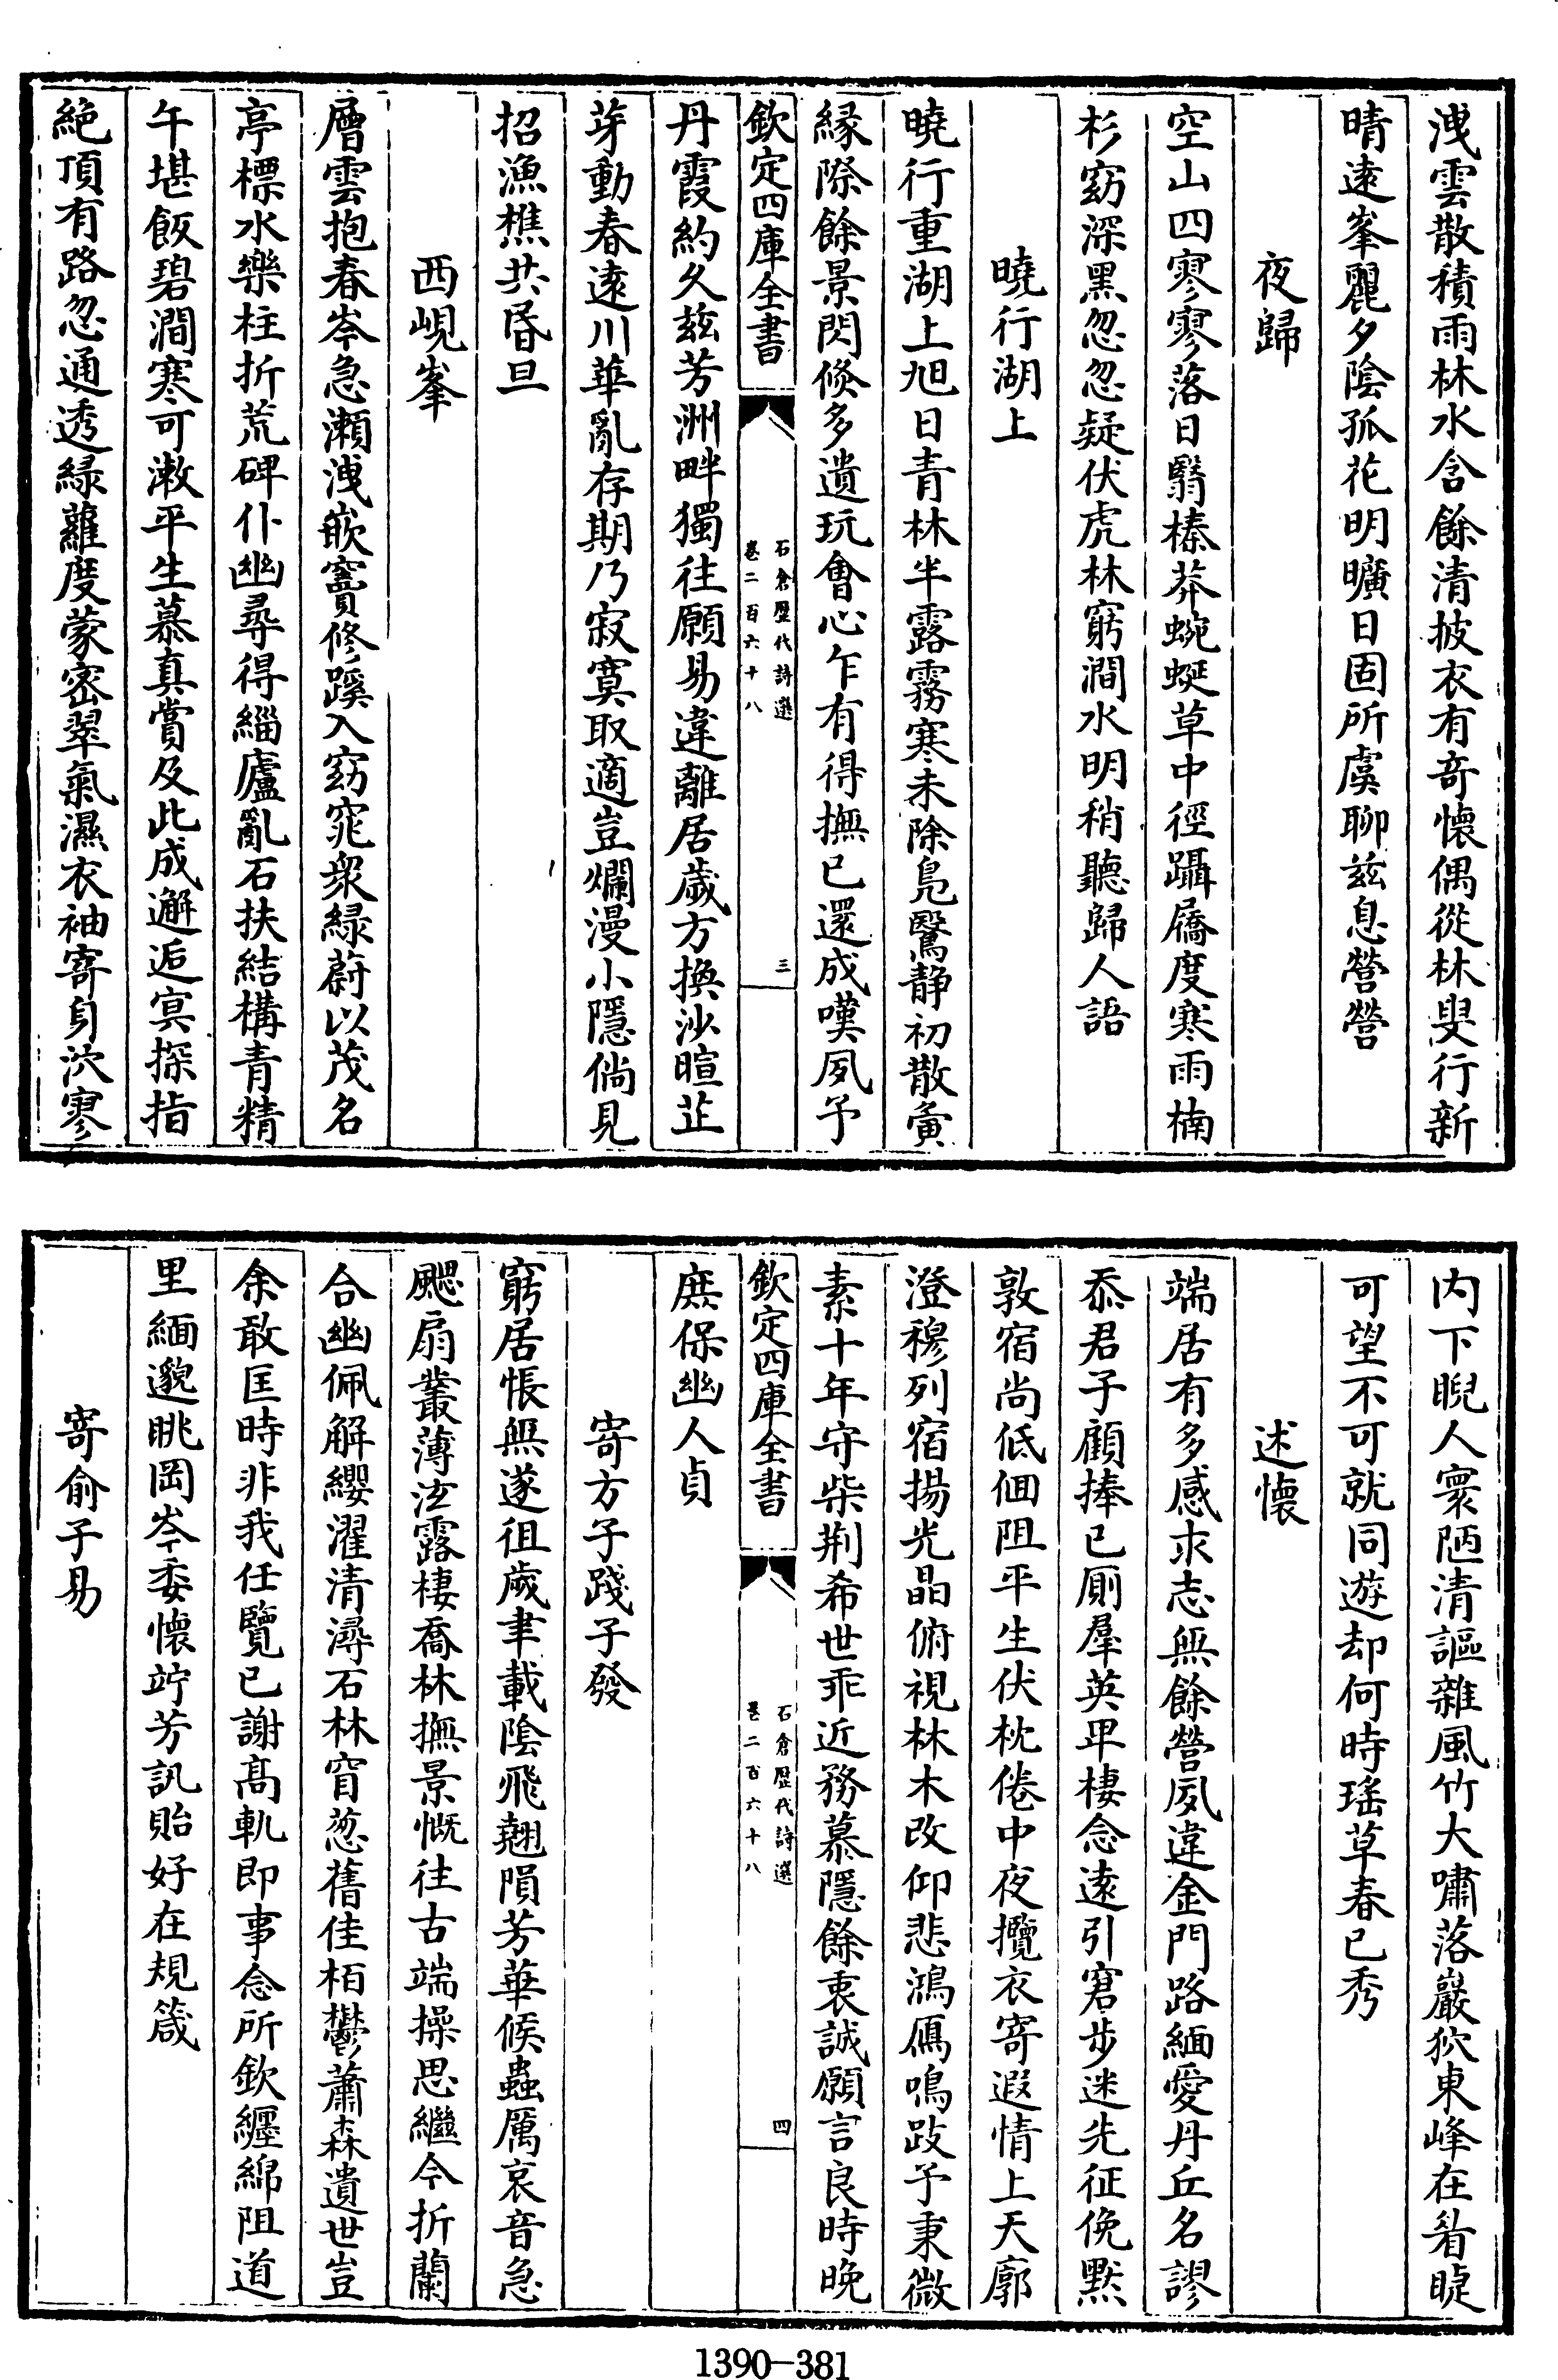 洩雲散積雨林水含餘清披衣有奇懷偶從林叟行新
晴遠峯麗夕陰孤花明曠日固所虞聊兹息營營
夜歸
空山四寥寥落日翳榛莽蜿蜒草中徑躡屩度寒雨楠
杉窈深黑忽忽疑伏虎林窮澗水明稍聽歸人語
曉行湖上
曉行重湖上旭日青林半露霧寒未除鳧鷖静初散夤
縁際餘景閃倐多遺玩會心乍有得撫已還成嘆夙予
欽定四庫全書
石倉歷代詩選
卷二百六十八
三
丹霞約久兹芳洲畔獨往願易違離居歲方換沙暄芷
芽動春遠川華亂存期乃寂寞取適豈爛漫小隱倘見
招漁樵共昏旦
西峴峯
層雲抱春岑急瀬洩嵌竇修蹊入窈窕衆緑蔚以茂名
亭標水樂柱折荒碑仆幽尋得緇廬亂石扶結構青精
午堪飯碧澗寒可漱平生慕真賞及此成邂逅冥探指
絶頂有路忽通透緑蘿度蒙密翠氣濕衣袖寄身泬寥
内下睨人寰陋清謳雜風竹大嘯落巖狖東峰在眷睫
可望不可就同遊却何時瑶草春已秀
述懷
端居有多感求志無餘營夙違金門路緬愛丹丘名謬
忝君子顧捧已厠羣英卑棲念遠引窘步迷先征俛默
敦宿尚低佪阻平生伏枕倦中夜攬衣寄遐情上天廓
澄穆列宿揚光晶俯視林木改仰悲鴻鴈鳴跂予秉微
素十年守柴荆希世乖近務慕隱餘衷誠願言良時晚
欽定四庫全書
石倉歷代詩選
卷二百六十八
四
庶保幽人貞
寄方子踐子發
窮居悵無遂徂歲聿載陰飛翹隕芳華候蟲厲哀音急
颸扇叢薄泫露棲喬林撫景慨往古端操思繼今折蘭
合幽佩解纓濯清潯石林窅葱蒨佳栢鬱蕭森遺世豈
余敢匡時非我任覽已謝髙軌即事念所欽纒綿阻道
里緬邈眺岡岑委懷竚芳訊貽好在規箴
寄俞子易
1390-381